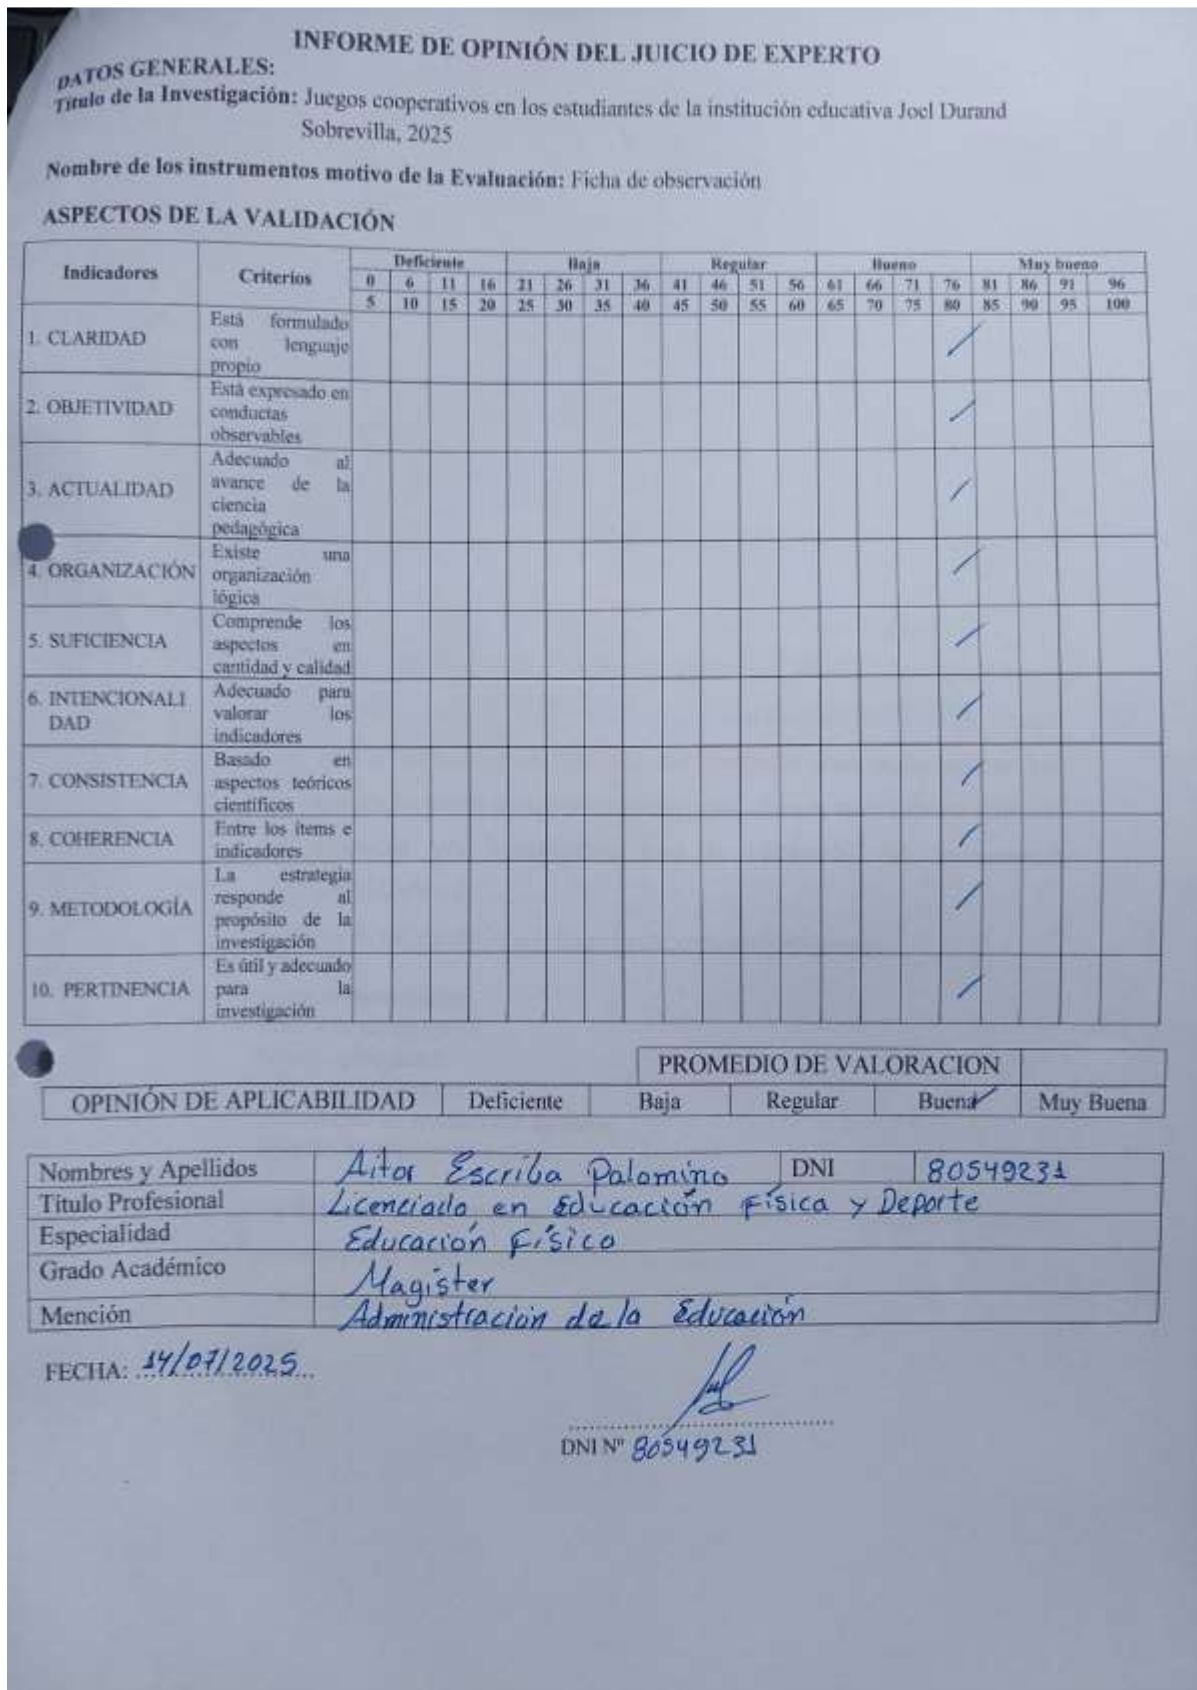 INFORME DE OPINIÓN DEL JUICIO DE EXPERTO
DATOS GENERALES:
Título de la Investigación: Juegos cooperativos en los estudiantes de la institución educativa Joel Durand
Sobrevilla, 2025
Nombre de los instrumentos motivo de la Evaluación: Ficha de observación
ASPECTOS DE LA VALIDACIÓN
Indicadores Criterios Deficiente Baja Regular Bueno Muy bueno
0 6 11 16 21 26 31 36 41 46 51 56 61 66 71 76 81 86 91 96
5 10 15 20 25 30 35 40 45 50 55 60 65 70 75 80 85 90 95 100
1. CLARIDAD
Está formulado
con lenguaje
propio
2. OBJETIVIDAD
Está expresado en
conductas
observables
3. ACTUALIDAD
Adecuado al
avance de la
ciencia
pedagógica
4. ORGANIZACIÓN
Existe una
organización
lógica
5. SUFICIENCIA
Comprende los
aspectos en
cantidad y calidad
6. INTENCIONALI
DAD
Adecuado para
valorar los
indicadores
7. CONSISTENCIA
Basado en
aspectos teóricos
científicos
8. COHERENCIA
Entre los ítems e
indicadores
9. METODOLOGÍA
La estrategia
responde al
propósito de la
investigación
10. PERTINENCIA
Es útil y adecuado
para la
investigación
PROMEDIO DE VALORACION
OPINIÓN DE APLICABILIDAD Deficiente Baja Regular Buena Muy Buena
Nombres y Apellidos Aitor Escriba Palomino DNI 80549231
Título Profesional Licenciado en Educación Física y Deporte
Especialidad Educación Físico
Grado Académico Magister
Mención Administración de la Educación
FECHA: 14/07/2025
DNI Nº 80549231